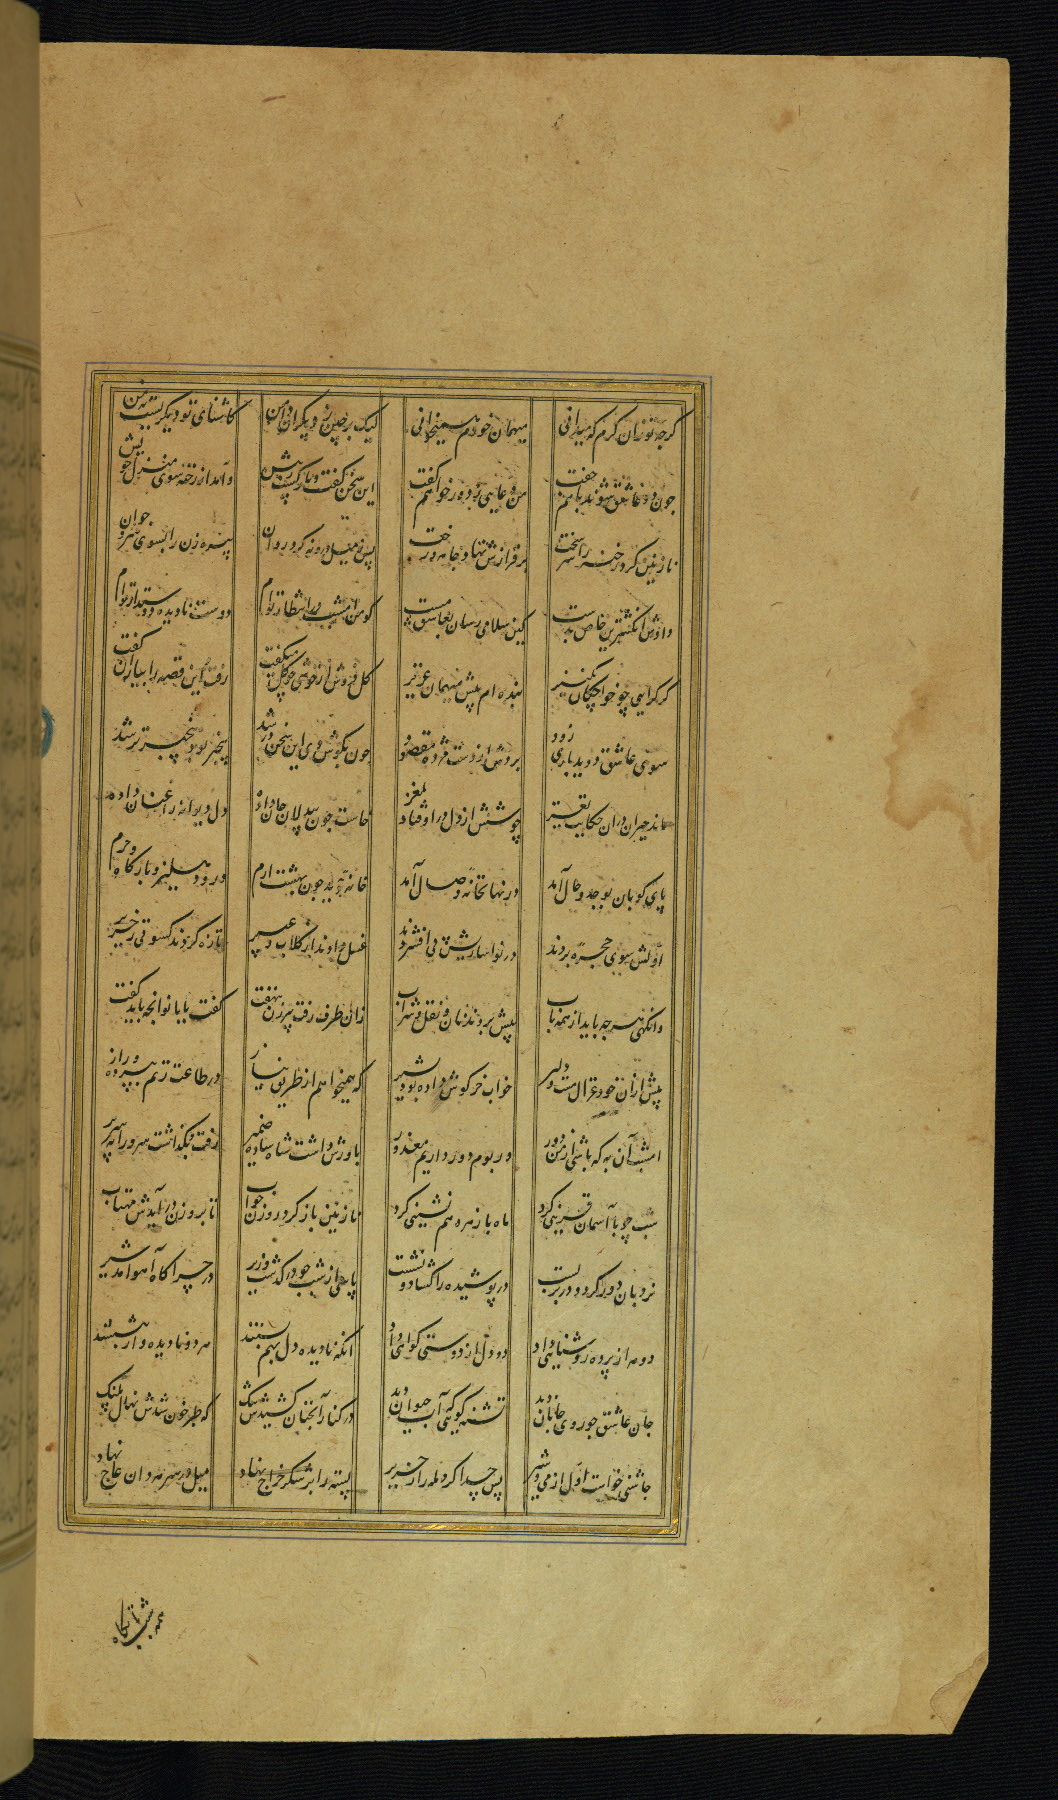 گرچه توزان کرم که میدانی میهمان خودم همیخوانی لیک برچین ز دیگران دامن کاشنای تو دیگرست نه من
چون دو عاشق شوند باهم جفت من و عاشق این سخن گفت و باز گشت بپیش وآمد از رخنه سوی منزل خویش
نازنین کرد رخنه را سر سخت بر فرازش نهاد جامه و رخت پس زمیل درونه کرد روان پیره زن را بسوی سرو جوان
دادش انگشترین خاص بدست کین سلامی رسان بعاشق مست کو من امشب در انتظار توام دوست نادیده دوستدار توام
گر گرامیی چو خواجگان بکنیز بنده ام پیش میهمان عزیز گل فروش از خوشی چو گل بشکفت رفت این قصه را بیاران گفت
سوی عاشق دوید باری زود بردش از دست مژده مقصود چون بگوش وی این سخن در شد بیخبر بود بیخبرتر شد
ماند حیران دران حکایت نغز جوشش از دل در اوفتاد بمغز خاست چون بیدلان جان داده دل دیوانه را عنان داده
پای کوبان بوجد و حال آمد در نهانخانهٔ وصال آمد خانهٔ دید چون بهشت ارم در و دهلیز و بارگاه و حرم
اولش سوی حجره بردند در نوا سازیش پی افشردند غسل دادند از گلاب و عبیر تازه کردند کسوتی ز حریر
وانگهی هر چه باید از همه باب پیش بردند نان و نقل و شراب زان طرف رفت پیرزن بنهفت گفت با بانو آنچه باید گفت
پیش ازان خود غزال مست دلیر خواب خرگوش داده بود بشیر که همیخواهم از طریق نیاز در طاعت زنم به پرده راز
امشب آن به که باشی از من دور ور بوم دور داریم معذور باورش داشت شاه ساده ضمیر رفت و بگذاشت سرو را به سریر
شب چو با آسمان قرینی کرد ماه با زهره هم نشینی کرد نازنین باز کرد روزن خواب تا بروزن در آیدش مهتاب
نردبان دور کرد و در بربست در پوشیده را گشاد و نشست پاسی از شب چو در گذشت وزیر در چراگاه آهو آمد شیر
دو مه از پرده روشنایی داد دو دل از دوستی گوایی داد آنکه نادیده دل بهم بستند هر دو نادیده وار بنشستند
جان عاشق چو روی جانان دید تشنه گویی که آب حیوان دید در کنار آنچنان کشیدش تنگ که طبرخون شدش نهال بلنگ
چاشنی خواست اول از می و شیر پس جدا کرد لمه را ز حریر پسته را بر شکر خراج نهاد میل در سرمه دان عاج نهاد
همه شب تا بگاه